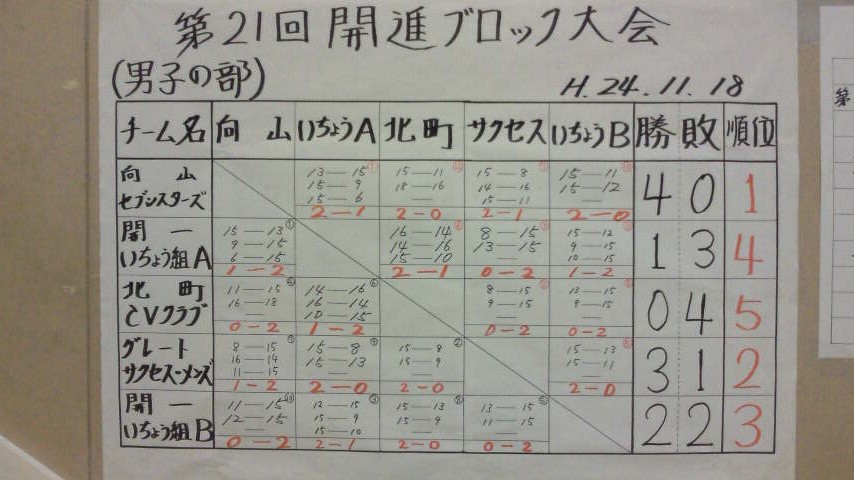 第21回 開進ブロック大会
(男子の部) H.24.11.18
チーム名 向山 いちょうA 北町 サクセス いちょうB 勝 敗 順位
向山 セブンスターズ 13—15 15—9 15—6 2-1 15—11 18—16 2-0 15—8 14—16 15—11 2-1 15—11 15—12 2-0 4 0 1
開一 いちょう組A 15—13 9—15 6—15 1-2 16—14 14—16 15—10 2-1 8—15 13—15 0-2 15—12 9—15 10—15 1-2 1 3 4
北町 CVクラブ 11—15 16—18 0-2 14—16 16—14 10—15 1-2 8—15 9—15 0-2 13—15 9—15 0-2 0 4 5
グレート サクセス・メンズ 8—15 16—14 11—15 1-2 15—8 15—13 2-0 15—8 15—9 2-0 15—13 15—11 2-0 3 1 2
開一 いちょう組B 11—15 12—15 0-2 12—15 15—9 15—10 2-1 15—13 15—9 2-0 13—15 11—15 0-2 2 2 3
第